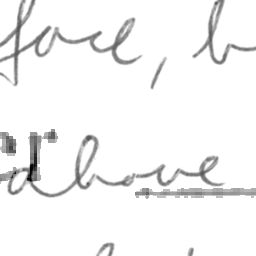 face, b
above